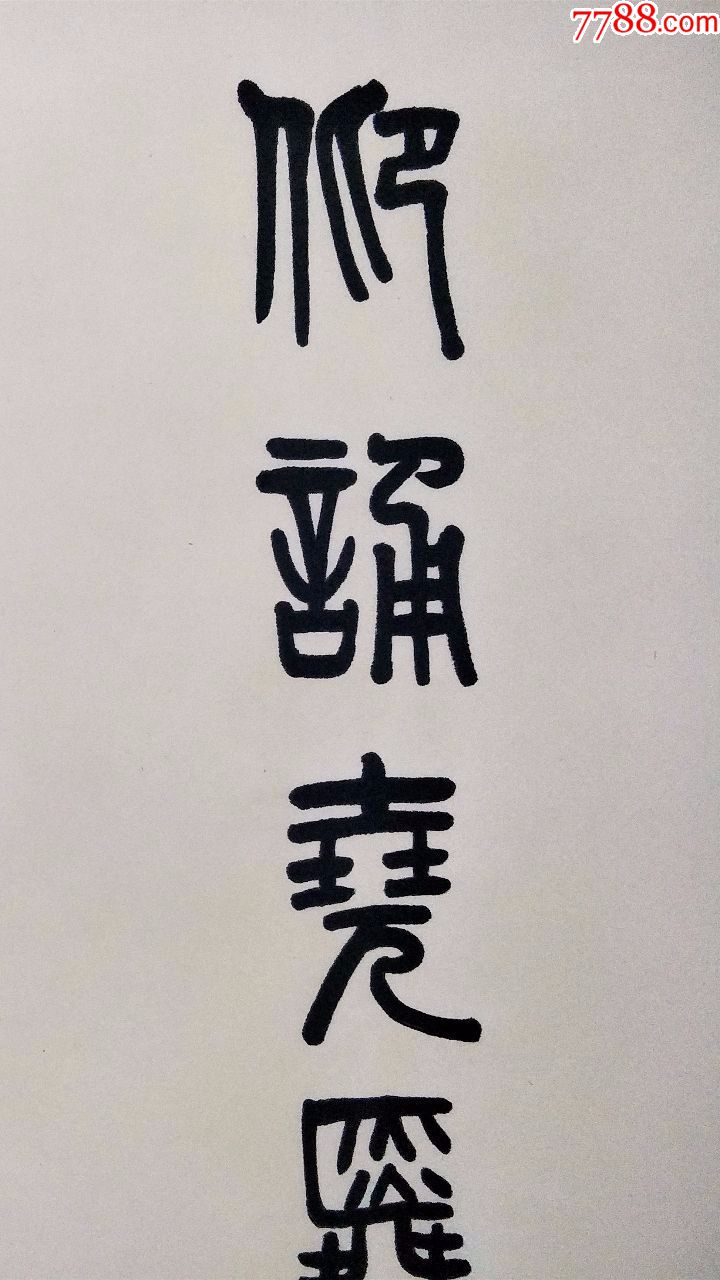 7788.com
仰
誦
堯